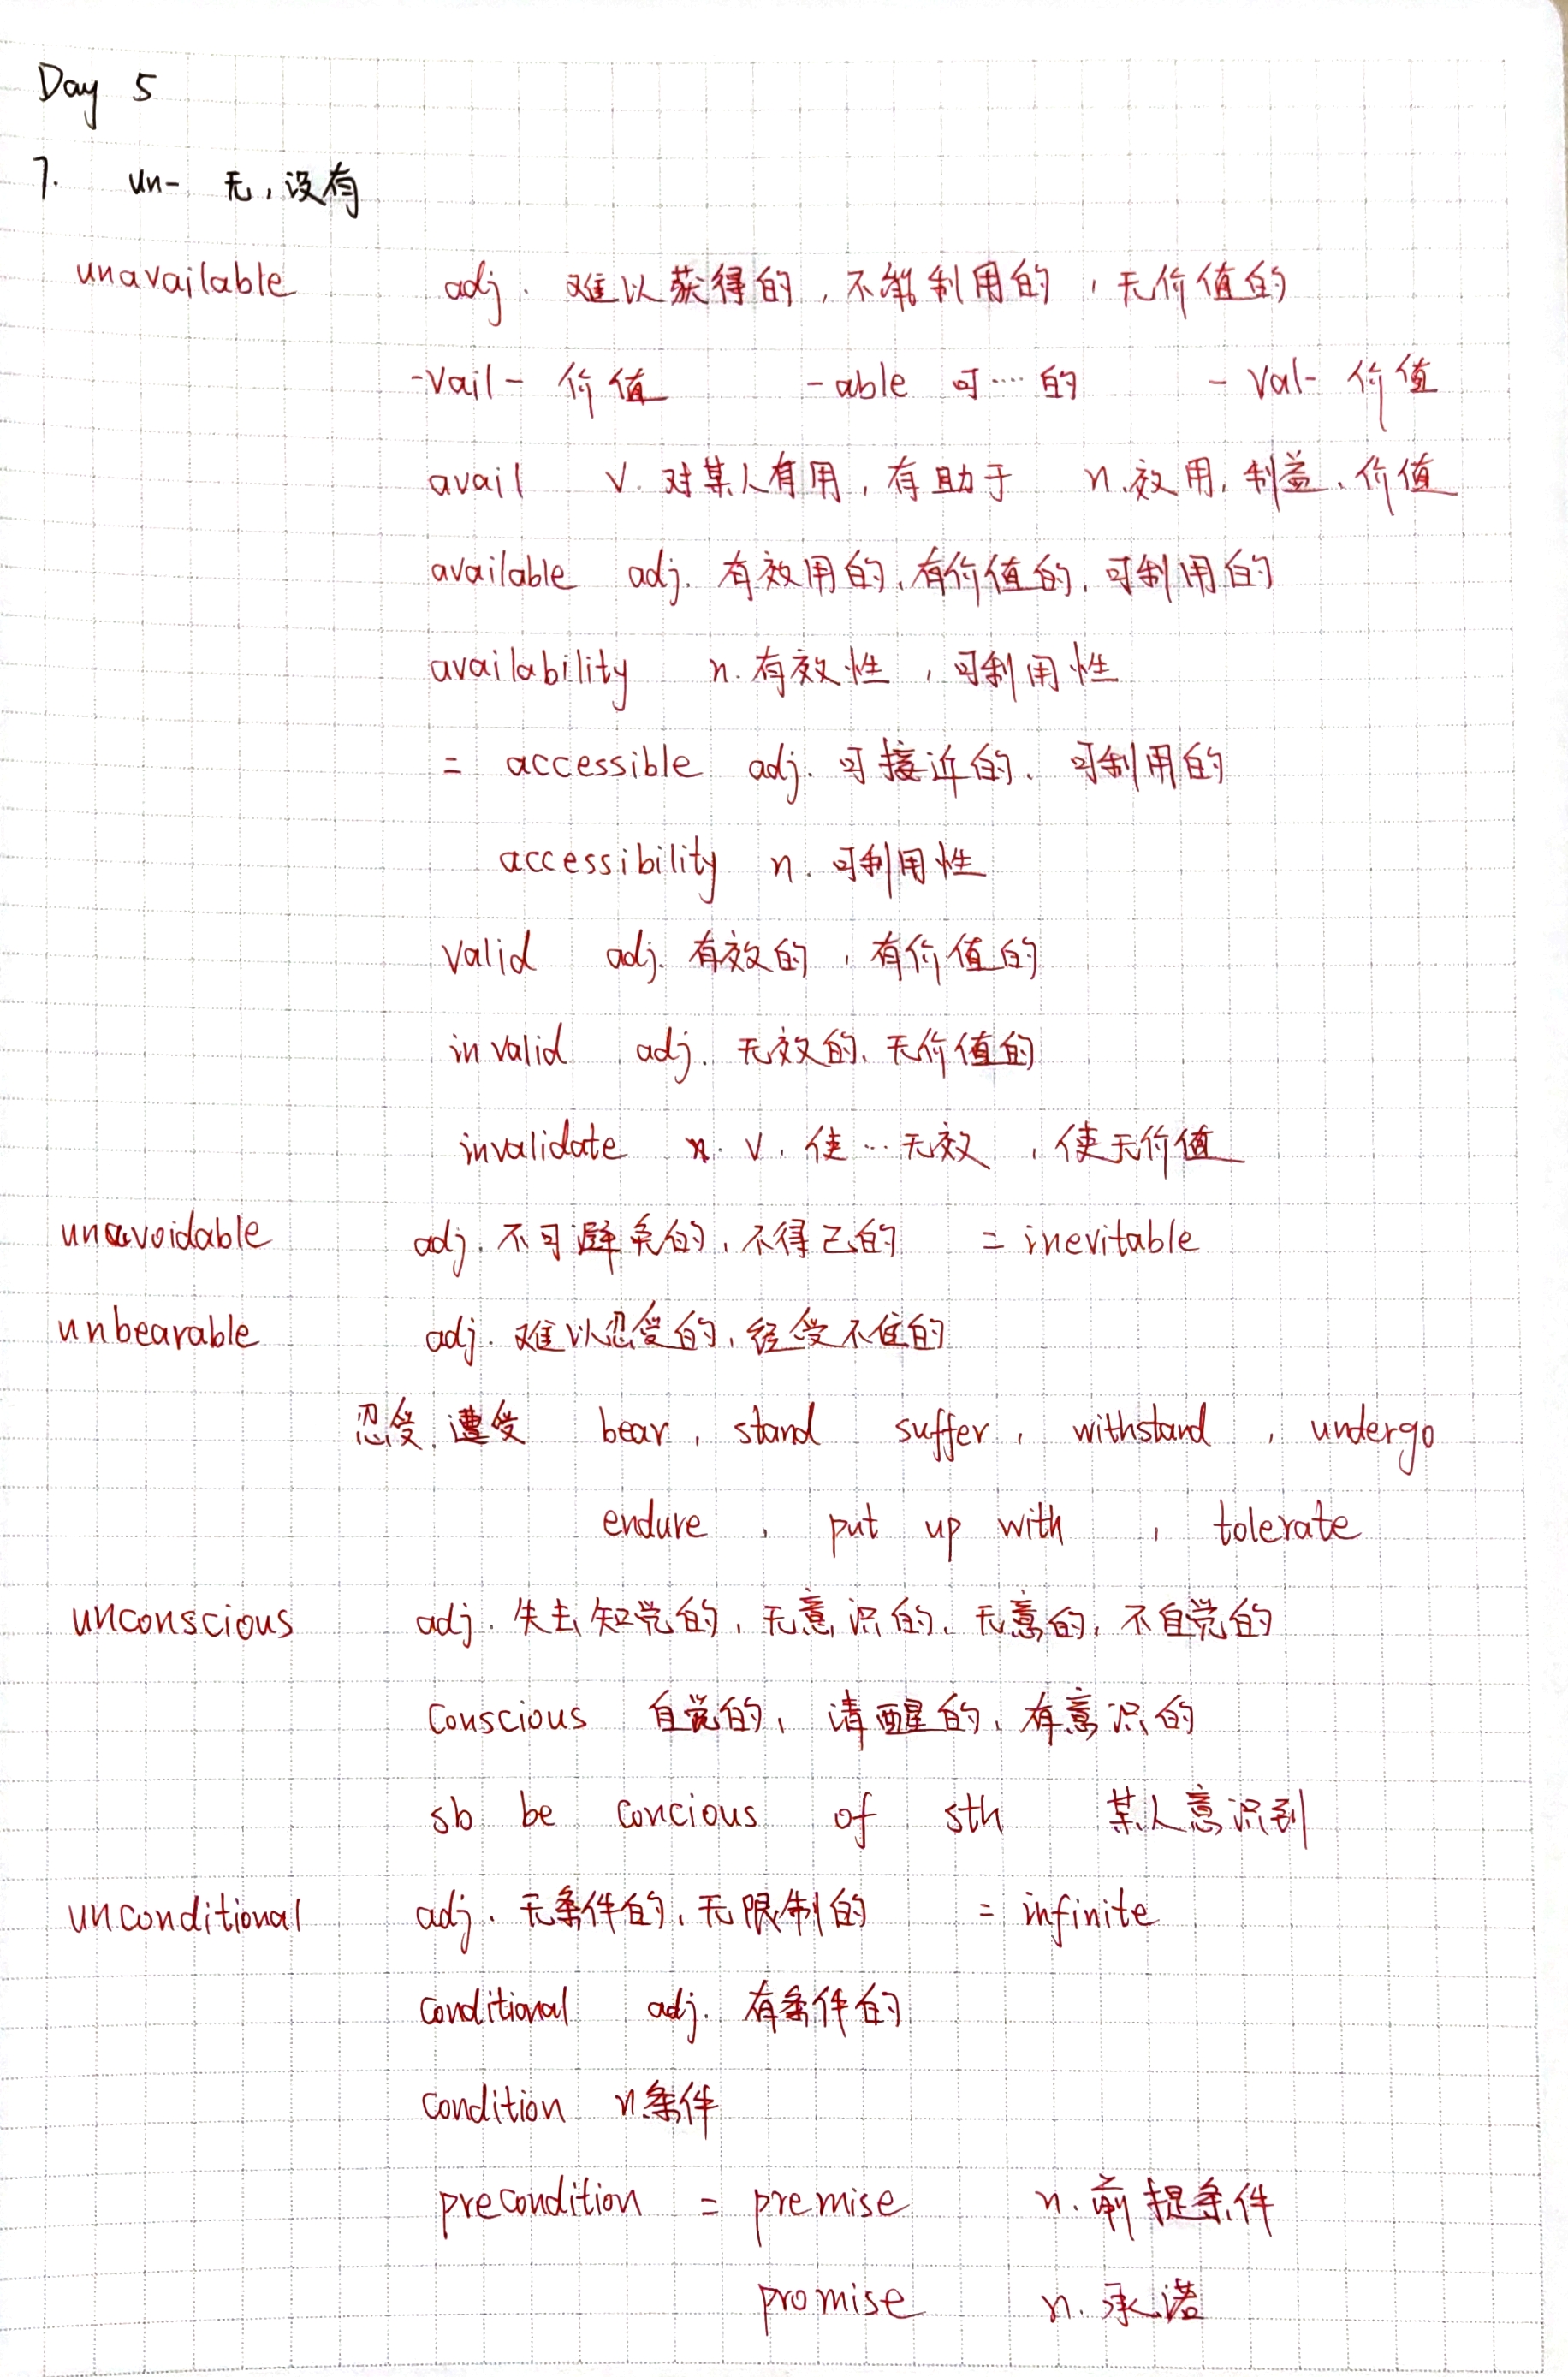 Day 5
7. un- 无,没有
unavailable adj. 难以获得的,不能利用的,无价值的
-vail- 价值 -able 可……的 -val- 价值
avail v. 对某人有用,有助于 n.效用,利益、价值
available adj. 有效用的、有价值的、可利用的
availability n. 有效性,可利用性
= accessible adj. 可接近的、可利用的
accessibility n. 可利用性
valid adj. 有效的,有价值的
invalid adj. 无效的、无价值的
invalidate v. 使…无效,使无价值
unavoidable adj. 不可避免的,不得已的 = inevitable
unbearable adj. 难以忍受的,经受不住的
忍受、遭受 bear, stand suffer, withstand, undergo
endure, put up with, tolerate
unconscious adj. 失去知觉的,无意识的、无意的,不自觉的
conscious 自觉的,清醒的、有意识的
sb be concious of sth 某人意识到
unconditional adj. 无条件的、无限制的 = infinite
conditional adj. 有条件的
condition n.条件
precondition = premise n. 前提条件
promise n. 承诺